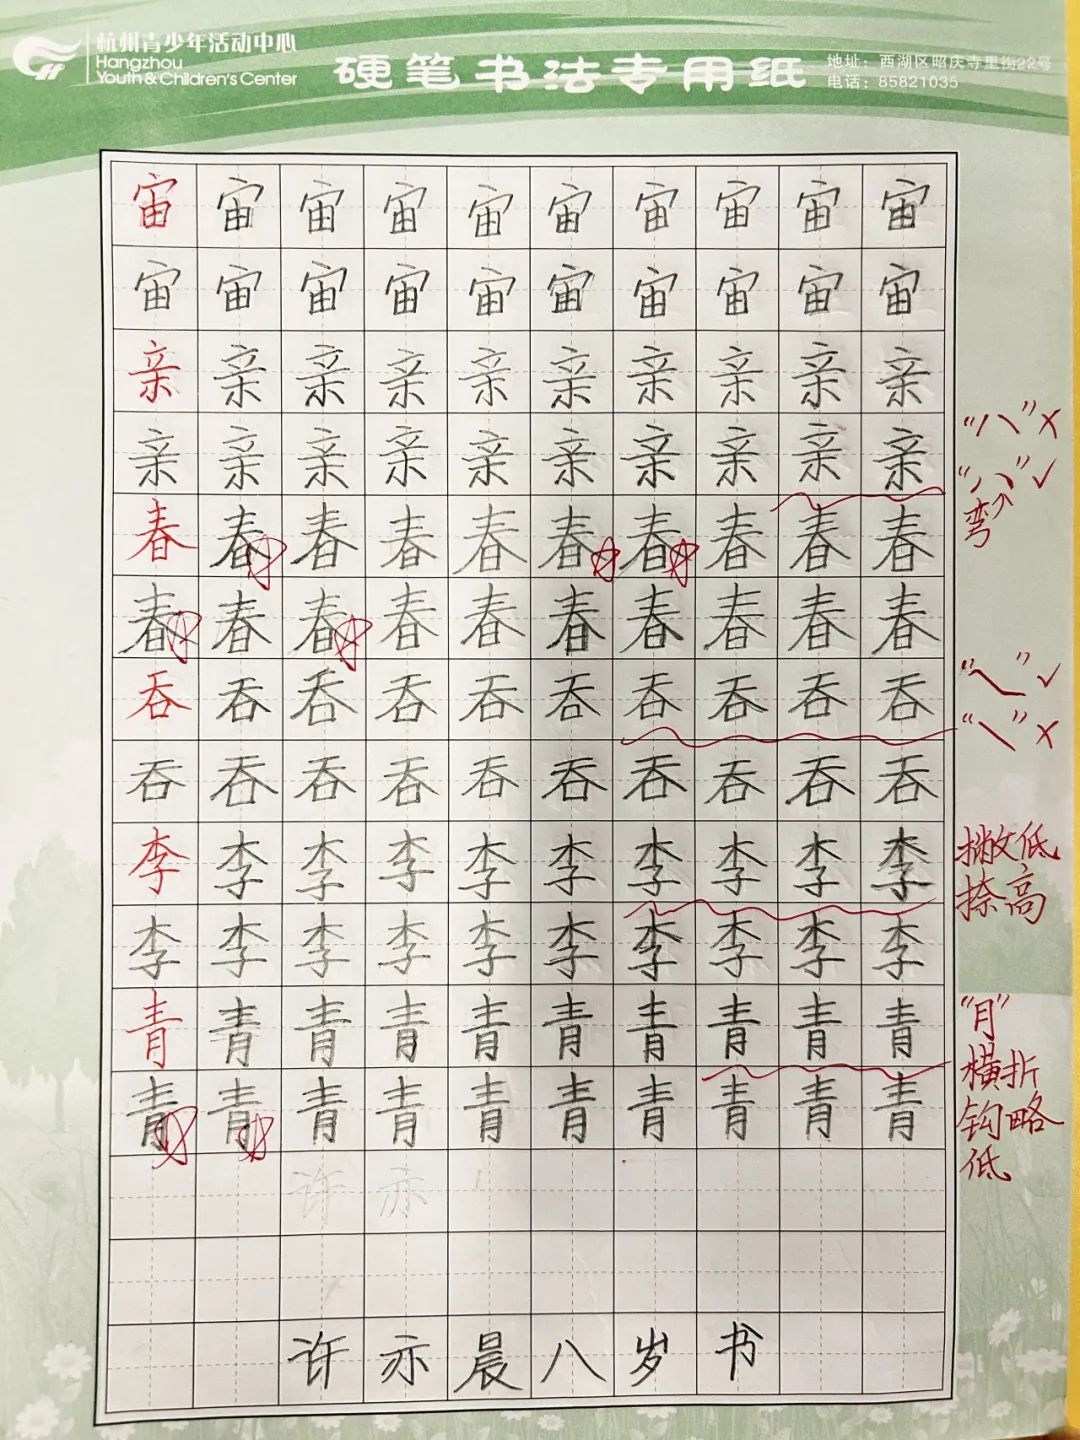 杭州青少年活动中心
Hangzhou
Youth & Children's Center
硬笔书法专用纸
地址：西湖区昭庆寺里街22号
电话：85821035
宙宙宙宙宙宙宙宙宙宙
宙宙宙宙宙宙宙宙宙宙
亲亲亲亲亲亲亲亲亲亲
亲亲亲亲亲亲亲亲亲亲
"八"×
"八"✓
弯
春春春春春春春春春春
春春春春春春春春春春
吞吞吞吞吞吞吞吞吞吞
"㇏"✓
"㇏"×
吞吞吞吞吞吞吞吞吞吞
李李李李李李李李李李
撇低
捺高
李李李李李李李李李李
青青青青青青青青青青
"月"
横折
钩略
低
青青青青青青青青青青
许亦
许亦晨八岁书